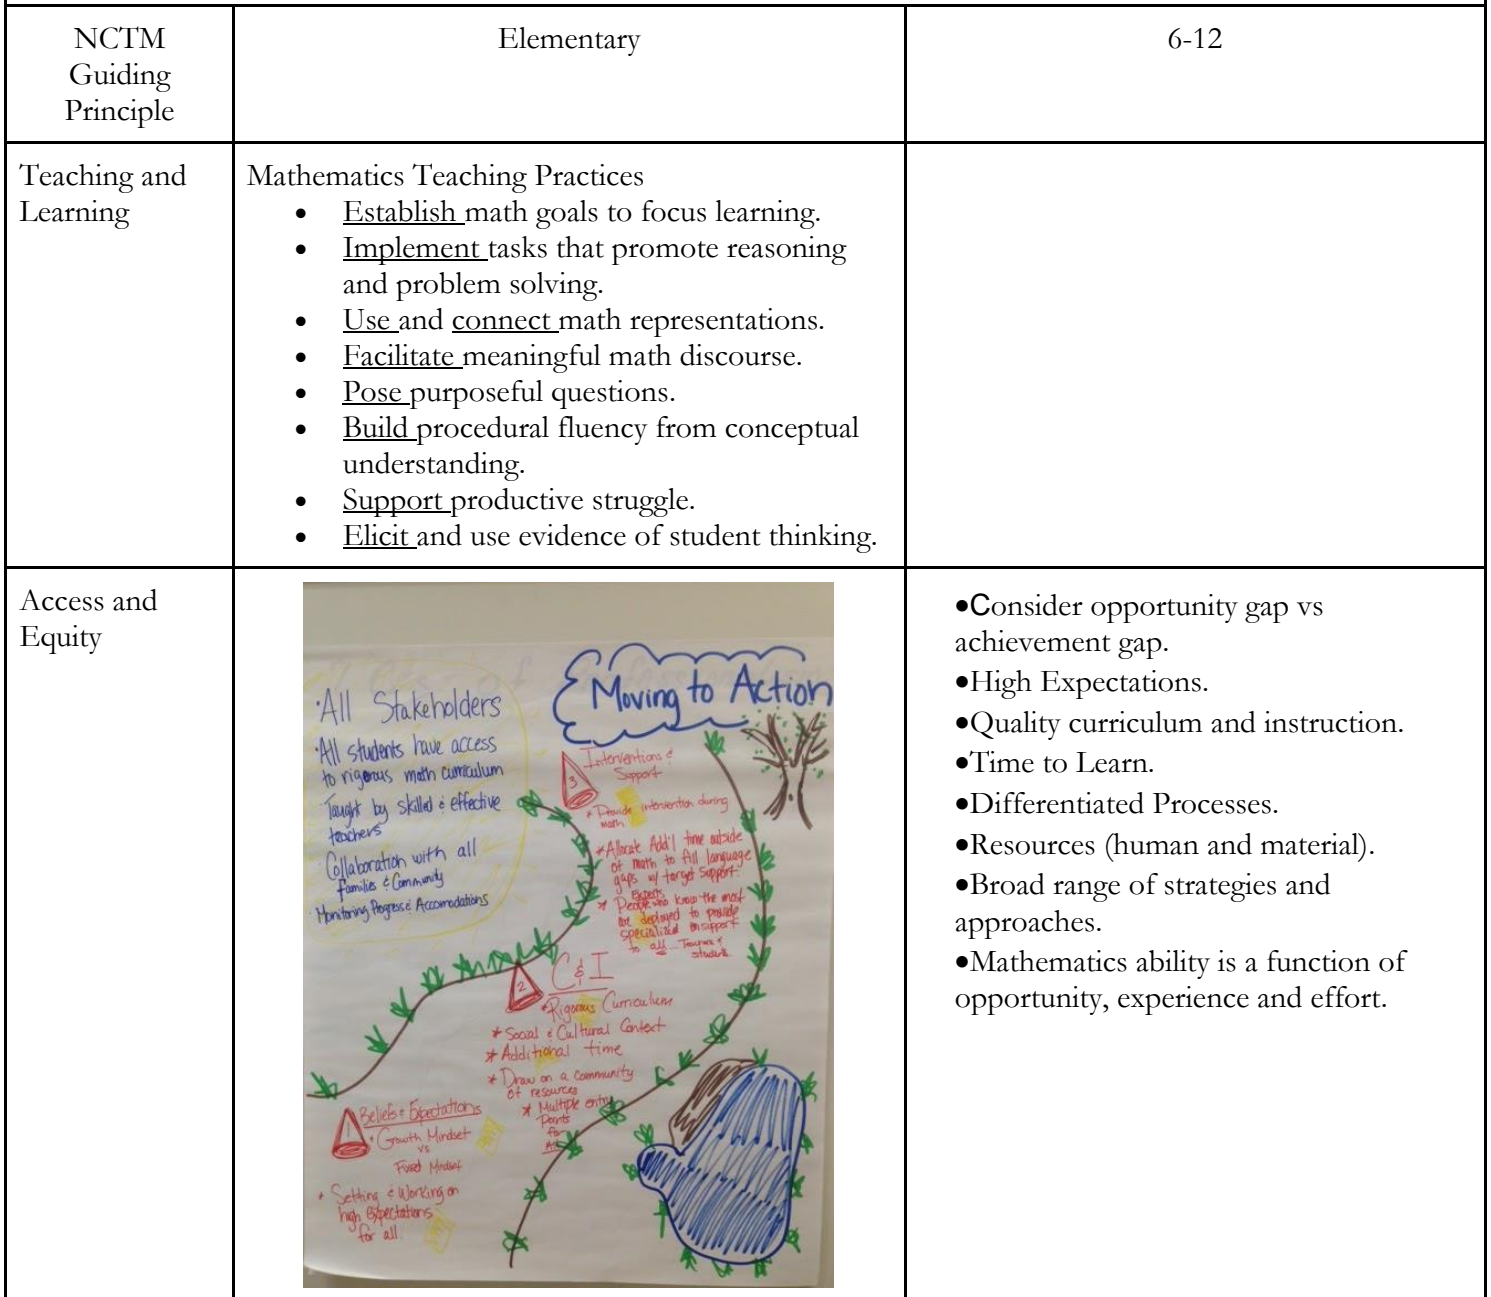 NCTM
Guiding
Principle
Elementary
6-12
Teaching and
Learning
Mathematics Teaching Practices
• Establish math goals to focus learning.
• Implement tasks that promote reasoning
and problem solving.
• Use and connect math representations.
• Facilitate meaningful math discourse.
• Pose purposeful questions.
• Build procedural fluency from conceptual
understanding.
• Support productive struggle.
• Elicit and use evidence of student thinking.
Access and
Equity
Moving to Action
• All Stakeholders
• All students have access
to rigorous math curriculum
Taught by skilled & effective
teachers
• Collaboration with all
Families & Community
• Monitoring Progress & Accomodations
3
Interventions &
Support
* Provide intervention during
math
* Allocate Add'l time outside
of math to fill language
gaps w/ target support.
Experts
* People who know the most
are deployed to provide
specialized support
to all
2
C & I
* Rigorous Curriculum
* Social & Cultural Context
* Additional time
* Draw on a community
of resources
* Multiple entry
Points
for
All
1
Beliefs & Expectations
* Growth Mindset
vs
Fixed Mindset
* Setting & Working on
high Expectations
for all.
•Consider opportunity gap vs
achievement gap.
•High Expectations.
•Quality curriculum and instruction.
•Time to Learn.
•Differentiated Processes.
•Resources (human and material).
•Broad range of strategies and
approaches.
•Mathematics ability is a function of
opportunity, experience and effort.